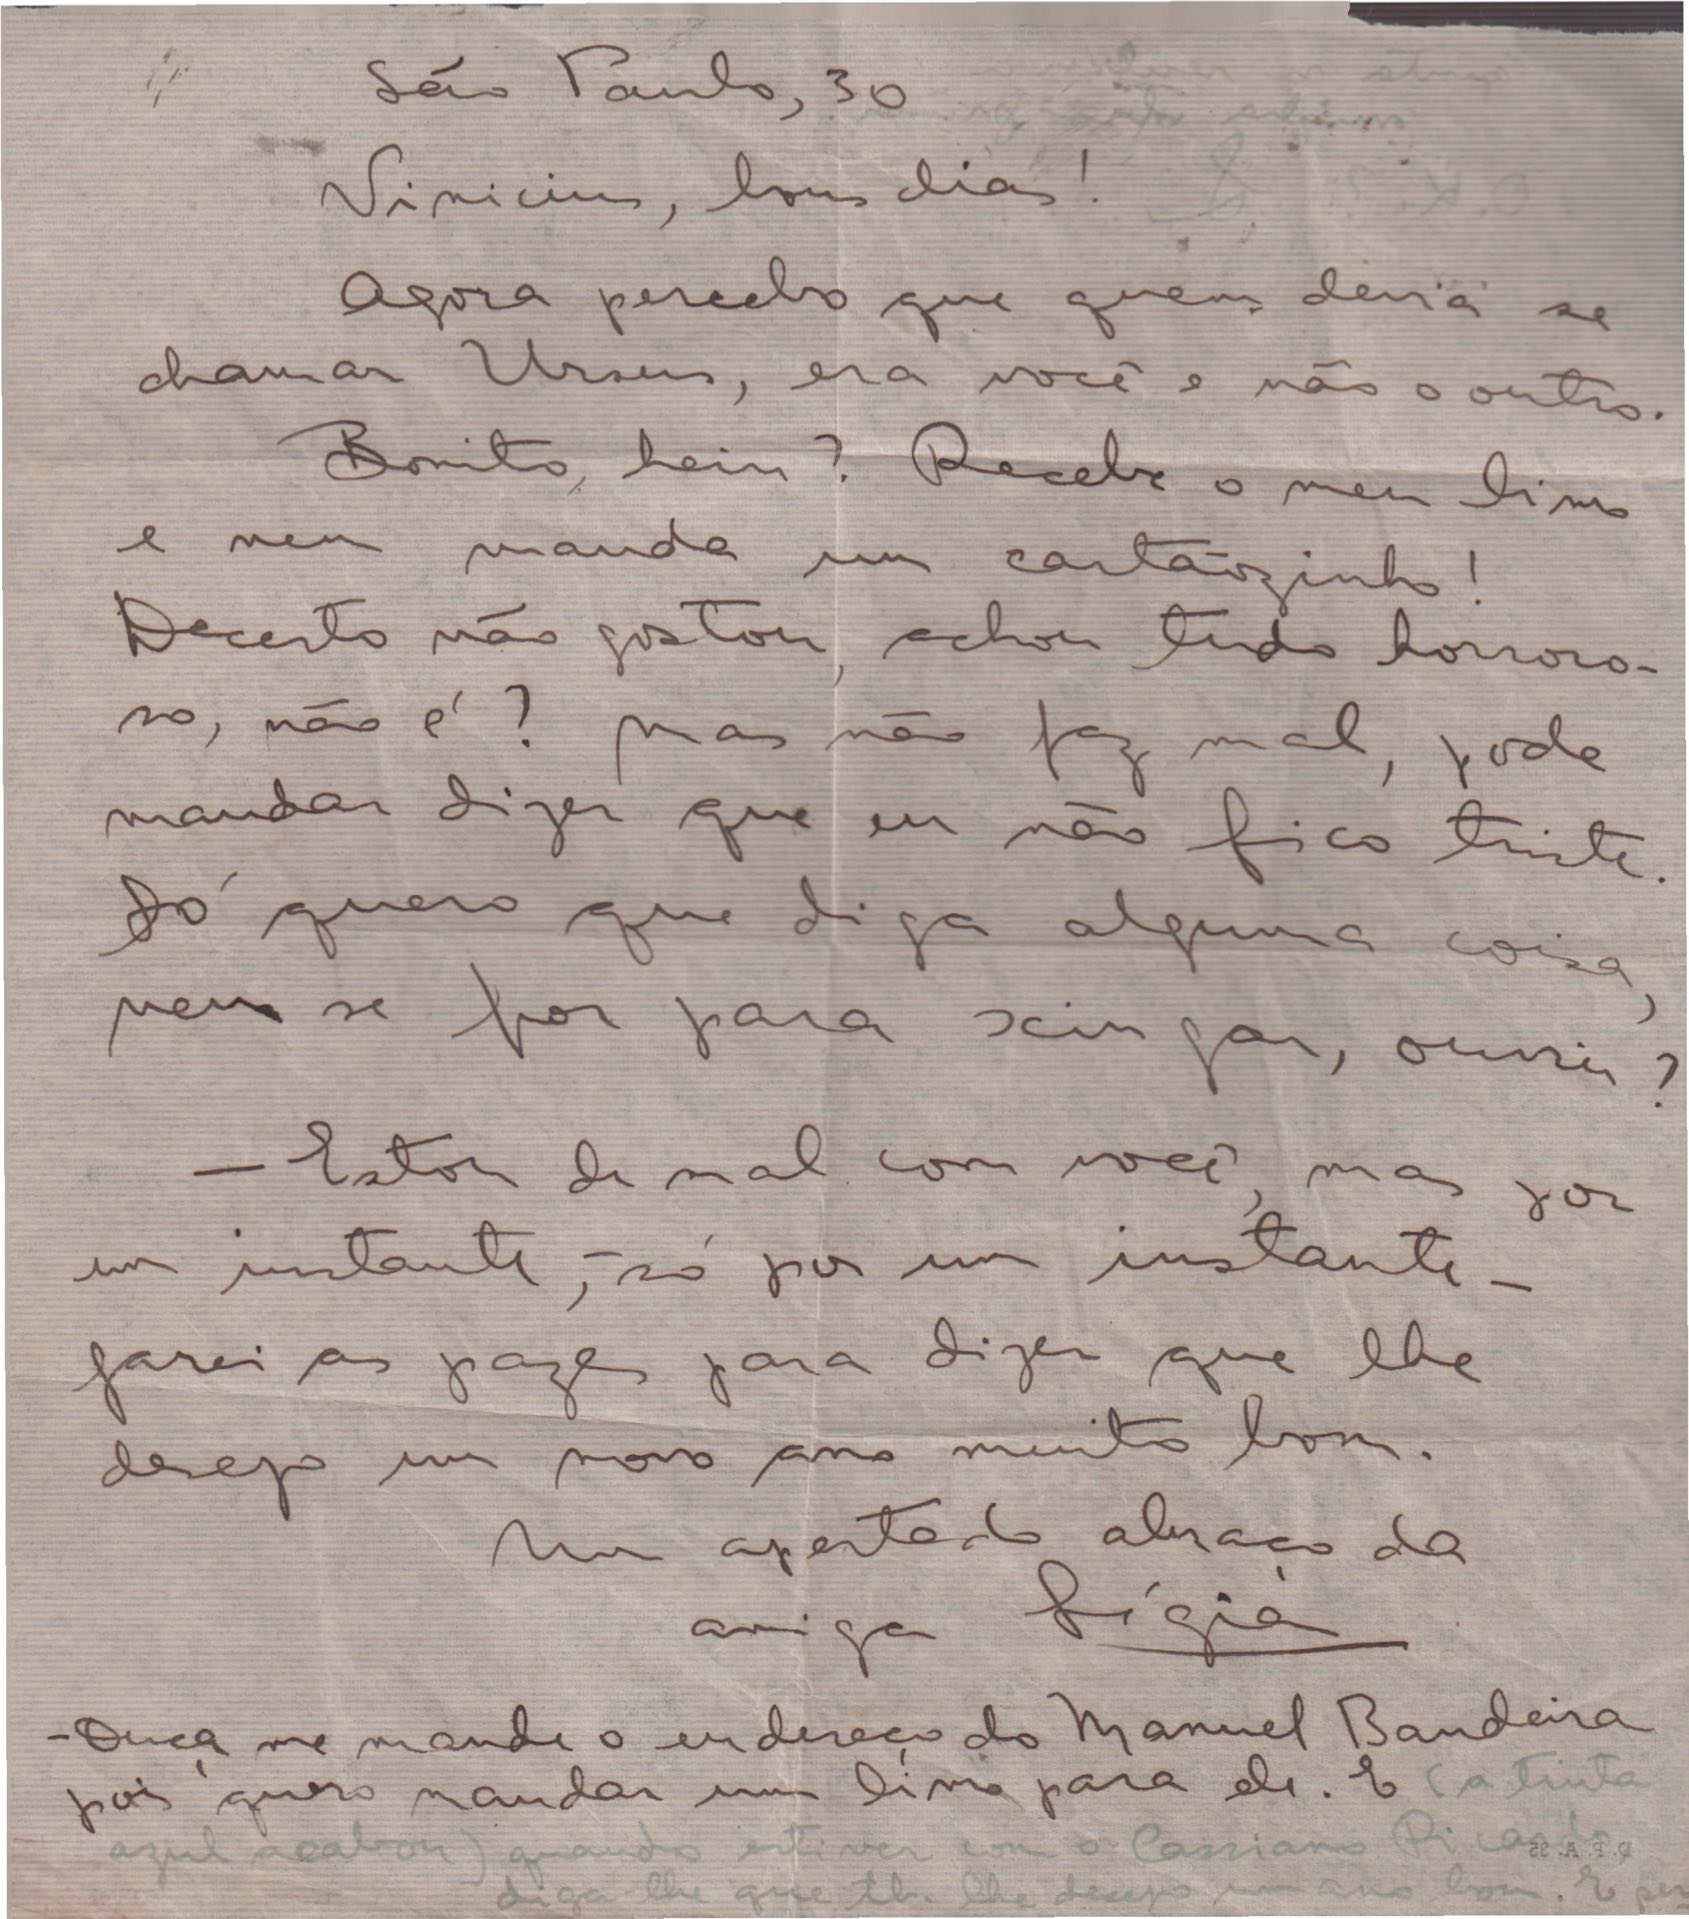 São Paulo, 30
Vinicius, bons dias!
Agora percebo que quem devia se
chamar Ursus, era você e não o outro.
Bonito, hein? Recebe o meu livro
e nem manda um cartãozinho!
Decerto não gostou, achou tudo horroro-
so, não é? Mas não faz mal, pode
mandar dizer que eu não fico triste.
Só quero que diga alguma coisa,
nem se for para xingar, ouviu?
— Estou de mal com você, mas por
um instante, – só por um instante –
farei as pazes para dizer que lhe
desejo um novo ano muito bom.
Um apertado abraço da
amiga Lígia
- Ouça me mande o endereço do Manuel Bandeira
pois quero mandar um livro para ele. E (a tinta
azul acabou) quando estiver com o Cassiano Ricardo
diga-lhe que tb. lhe desejo um ano bom. E